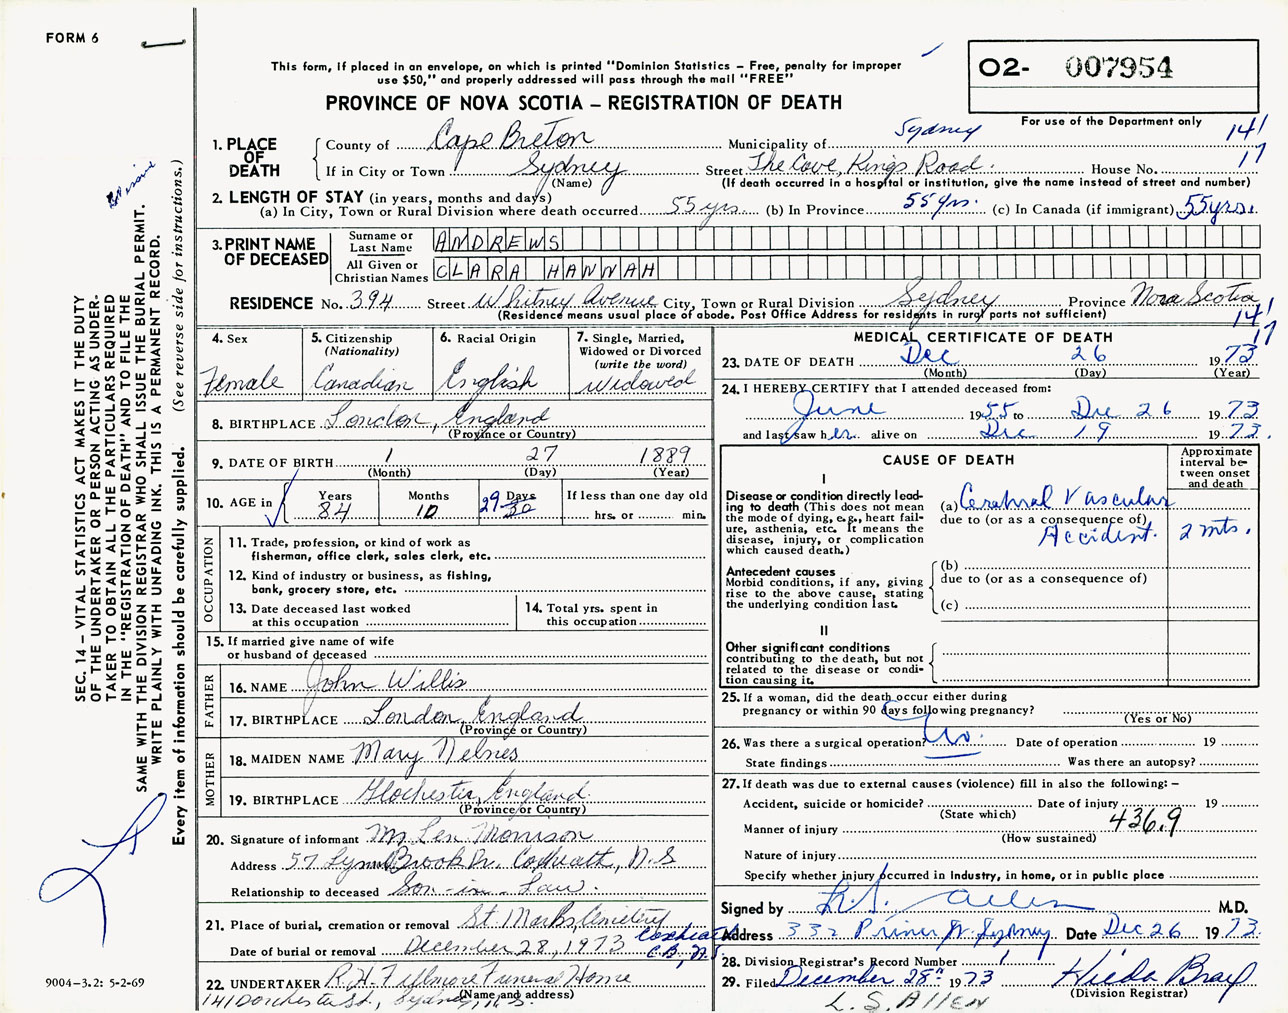 FORM 6
This form, if placed in an envelope, on which is printed "Dominion Statistics – Free, penalty for improper
use $50," and properly addressed will pass through the mail "FREE"
PROVINCE OF NOVA SCOTIA – REGISTRATION OF DEATH
O2- 007954
For use of the Department only
14
17
1. PLACE OF DEATH
County of Cape Breton Municipality of Sydney
If in City or Town Sydney Street The Cove, Kings Road. House No.
(Name) (If death occurred in a hospital or institution, give the name instead of street and number)
2. LENGTH OF STAY (in years, months and days)
(a) In City, Town or Rural Division where death occurred 55 yrs. (b) In Province 55 yrs. (c) In Canada (if immigrant) 55 yrs.
3. PRINT NAME OF DECEASED
Surname or Last Name ANDREWS
All Given or Christian Names CLARA HANNAH
RESIDENCE No. 394 Street Whitney Avenue City, Town or Rural Division Sydney Province Nova Scotia
(Residence means usual place of abode. Post Office Address for residents in rural parts not sufficient)
14
17
4. Sex Female
5. Citizenship (Nationality) Canadian
6. Racial Origin English
7. Single, Married, Widowed or Divorced (write the word) Widowed
8. BIRTHPLACE London, England
(Province or Country)
9. DATE OF BIRTH 1 27 1889
(Month) (Day) (Year)
10. AGE in Years 84 Months 10 Days 29 30 If less than one day old
hrs. or min.
OCCUPATION
11. Trade, profession, or kind of work as
fisherman, office clerk, sales clerk, etc.
12. Kind of industry or business, as fishing,
bank, grocery store, etc.
13. Date deceased last worked
at this occupation
14. Total yrs. spent in
this occupation
15. If married give name of wife
or husband of deceased
FATHER
16. NAME John Willis
17. BIRTHPLACE London, England
(Province or Country)
MOTHER
18. MAIDEN NAME Mary
19. BIRTHPLACE England.
(Province or Country)
20. Signature of informant Mr. Len Morrison
Address 57 Lynn Brook Dr. Coxheath, N.S
Relationship to deceased Son-in-Law.
21. Place of burial, cremation or removal St. Marks Cemetery
Coxheath C.B., N.S.
Date of burial or removal December 28, 1973
22. UNDERTAKER R.H. Fillmore Funeral Home
(Name and address)
141 Dorchester St., Sydney, N.S.
MEDICAL CERTIFICATE OF DEATH
23. DATE OF DEATH Dec 26 1973
(Month) (Day) (Year)
24. I HEREBY CERTIFY that I attended deceased from:
June 1955 to Dec 26 1973
and last saw her alive on Dec 19 1973.
CAUSE OF DEATH
Approximate interval between onset and death
I
Disease or condition directly leading to death (This does not mean the mode of dying, e.g., heart failure, asthenia, etc. It means the disease, injury, or complication which caused death.)
(a) Cerebral Vascular
due to (or as a consequence of)
Accident. 2 mts.
Antecedent causes
Morbid conditions, if any, giving rise to the above cause, stating the underlying condition last.
(b)
due to (or as a consequence of)
(c)
II
Other significant conditions
contributing to the death, but not related to the disease or condition causing it.
25. If a woman, did the death occur either during
pregnancy or within 90 days following pregnancy?
(Yes or No)
26. Was there a surgical operation? No. Date of operation 19
State findings Was there an autopsy?
27. If death was due to external causes (violence) fill in also the following: –
Accident, suicide or homicide? Date of injury 19
(State which)
436.9
Manner of injury
(How sustained)
Nature of injury
Specify whether injury occurred in Industry, in home, or in public place
Signed by L.S. Allen M.D.
Address 332 Prince St. Sydney Date Dec 26 1973.
28. Division Registrar's Record Number 1
29. Filed December 28th 1973 Hilda Bray
(Division Registrar)
L. S. ALLEN
SEC. 14 – VITAL STATISTICS ACT MAKES IT THE DUTY
OF THE UNDERTAKER OR PERSON ACTING AS UNDER-
TAKER TO OBTAIN ALL THE PARTICULARS REQUIRED
IN THE "REGISTRATION OF DEATH" AND TO FILE THE
SAME WITH THE DIVISION REGISTRAR WHO SHALL ISSUE THE BURIAL PERMIT.
WRITE PLAINLY WITH UNFADING INK. THIS IS A PERMANENT RECORD.
Every item of information should be carefully supplied. (See reverse side for instructions.)
9004–3.2: 5-2-69